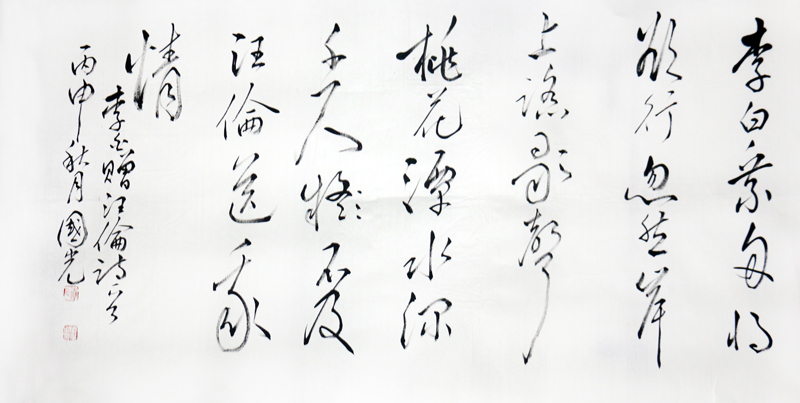 李白乘舟将
欲行忽岸
上歌聲
桃花潭水深
千尺不及
汪倫送我
情
李白贈汪倫詩一首
丙申秋月國光